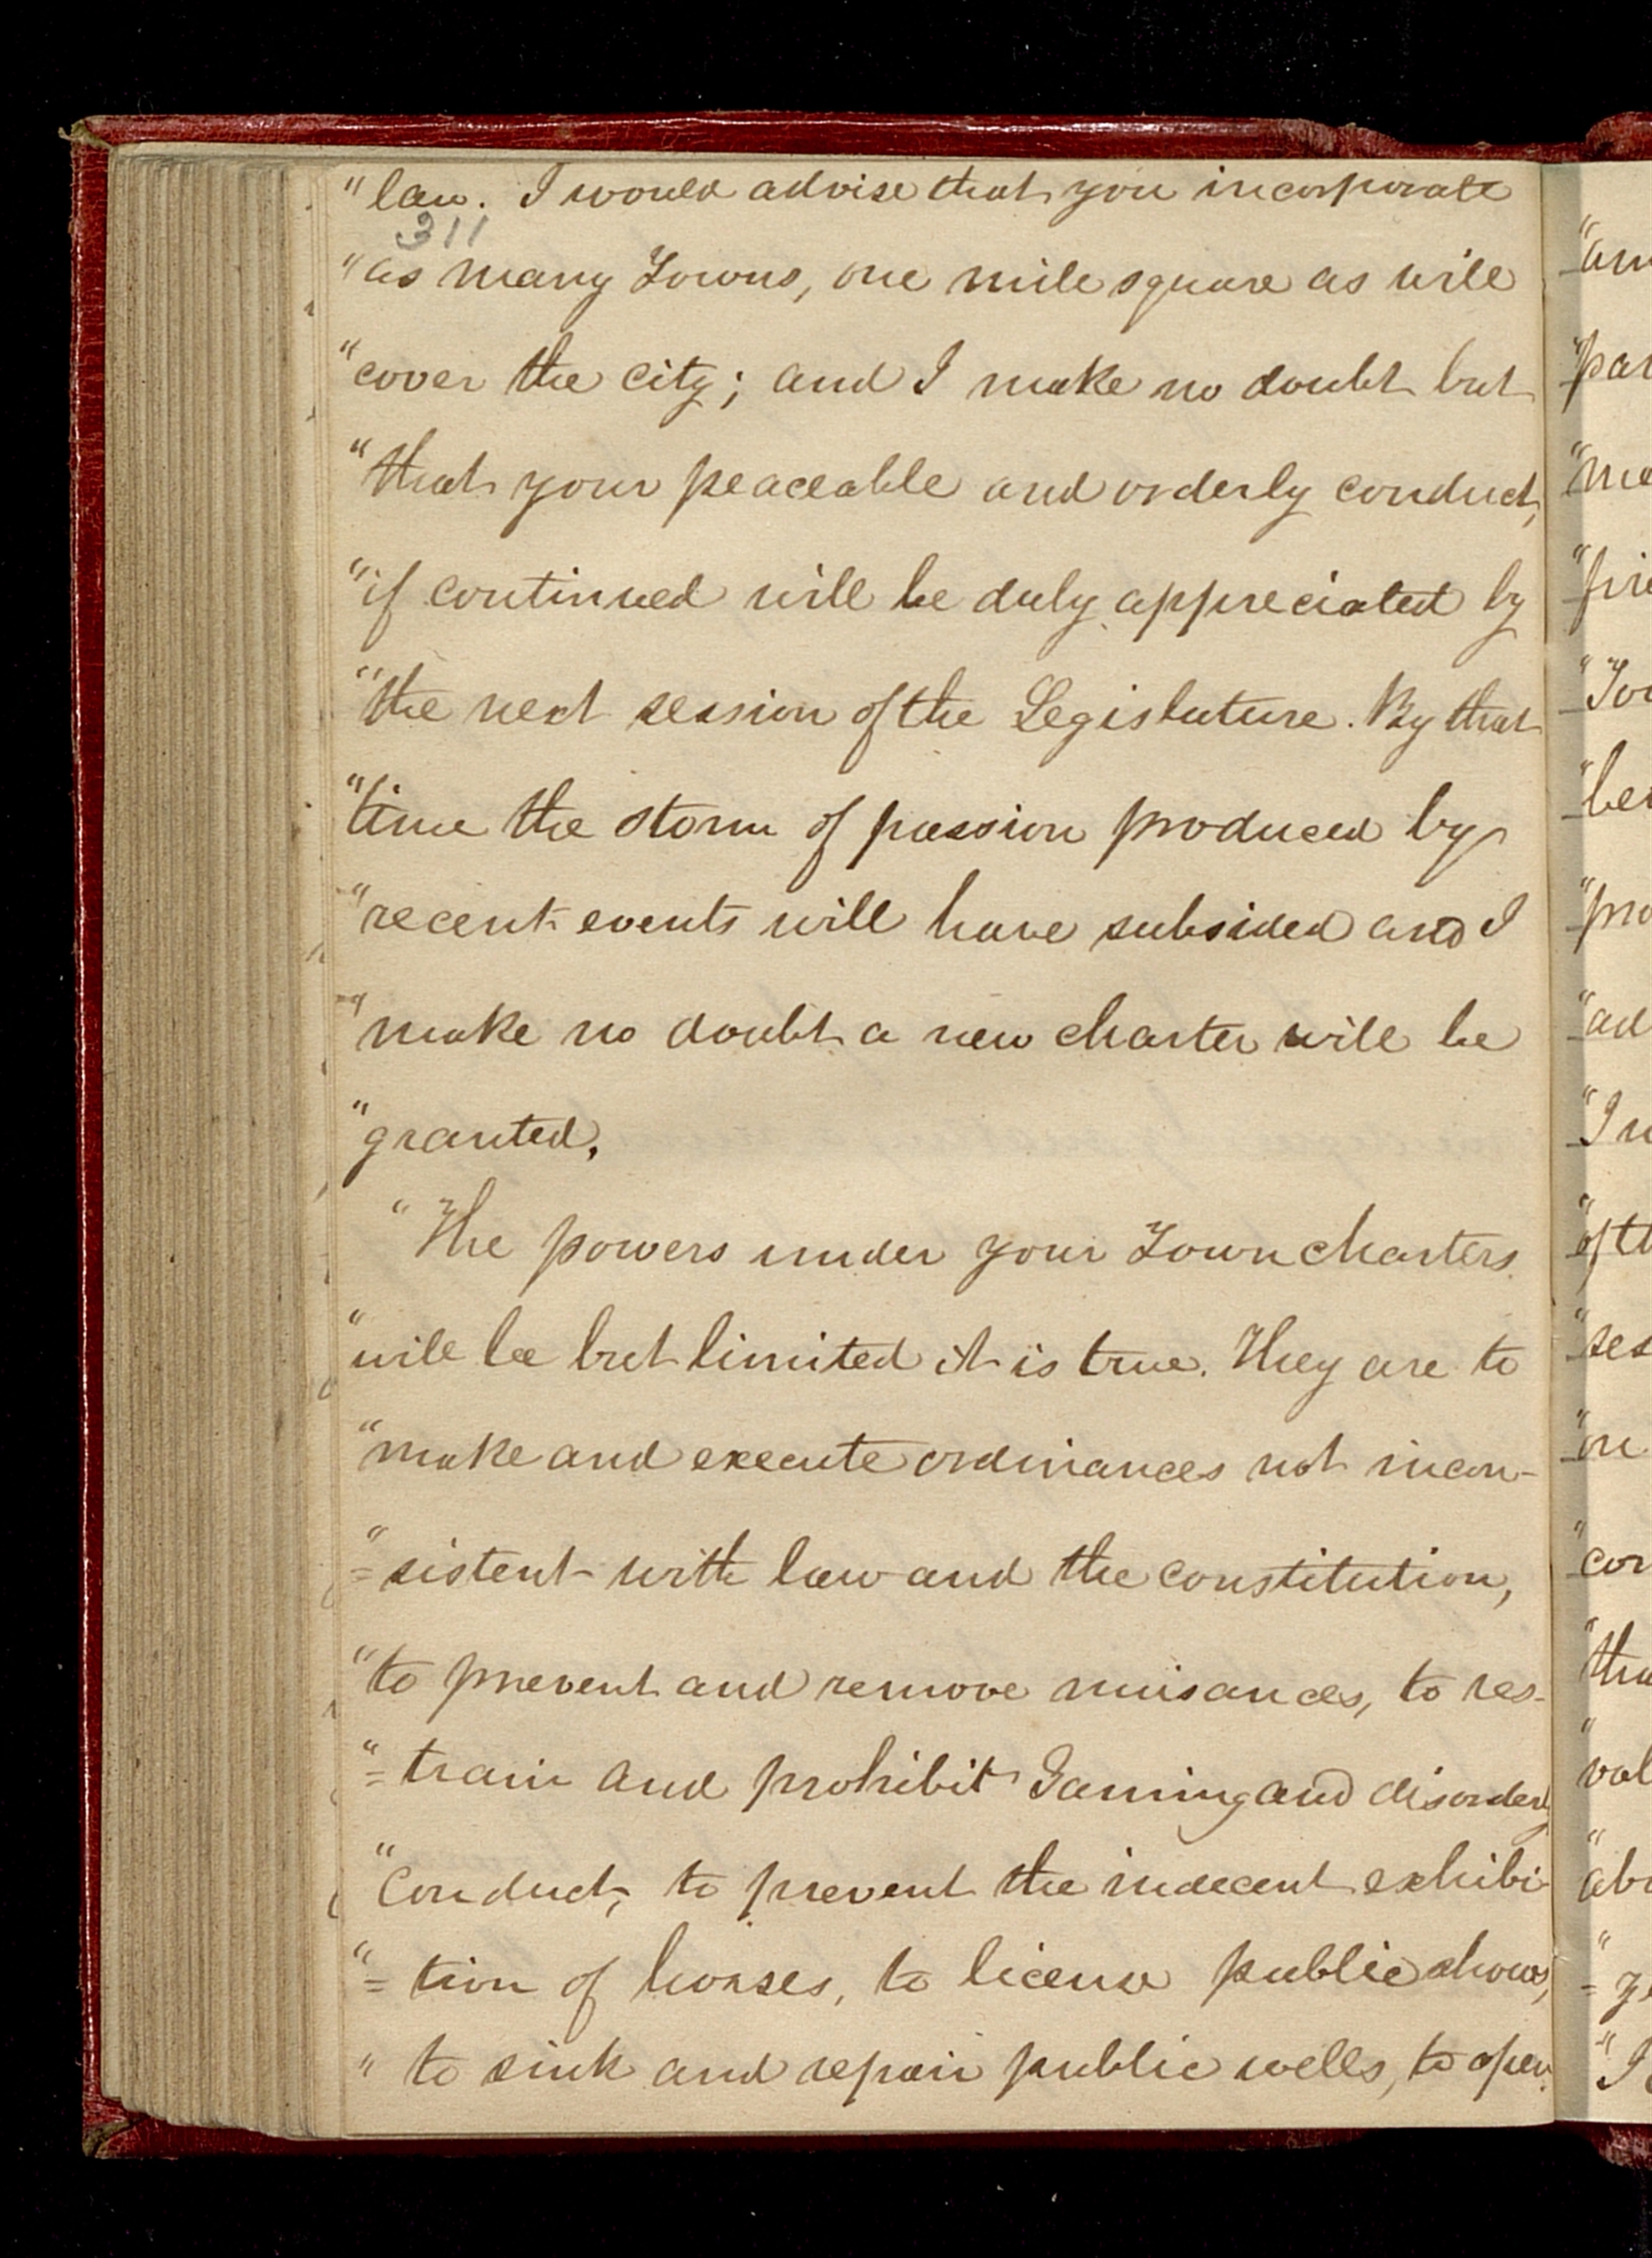 "law. I would advise that you incorporate
311
"as many Towns, one mile square as will
"cover the city; and I make no doubt but
"that your peaceable and orderly conduct,
"if continued will be duly appreciated by
"the next session of the Legislature. By that
"time the storm of passion produced by
"recent events will have subsided and I
"make no doubt a new charter will be
"granted.
"The powers under your Town charters
"will be but limited it is true. They are to
"make and execute ordinances not incon-
"=sistent with law and the constitution,
"to prevent and remove nuisances, to res-
"=train and prohibit Gaming and disorderly
"conduct, to prevent the indecent exhibi-
"=tion of horses, to license public shows,
"to sink and repair public wells, to open
"par
"me
"fire
"Tow
"be
"pro
"ad
"of th
"ses
"on
"con
"tha
"val
"abr
"I